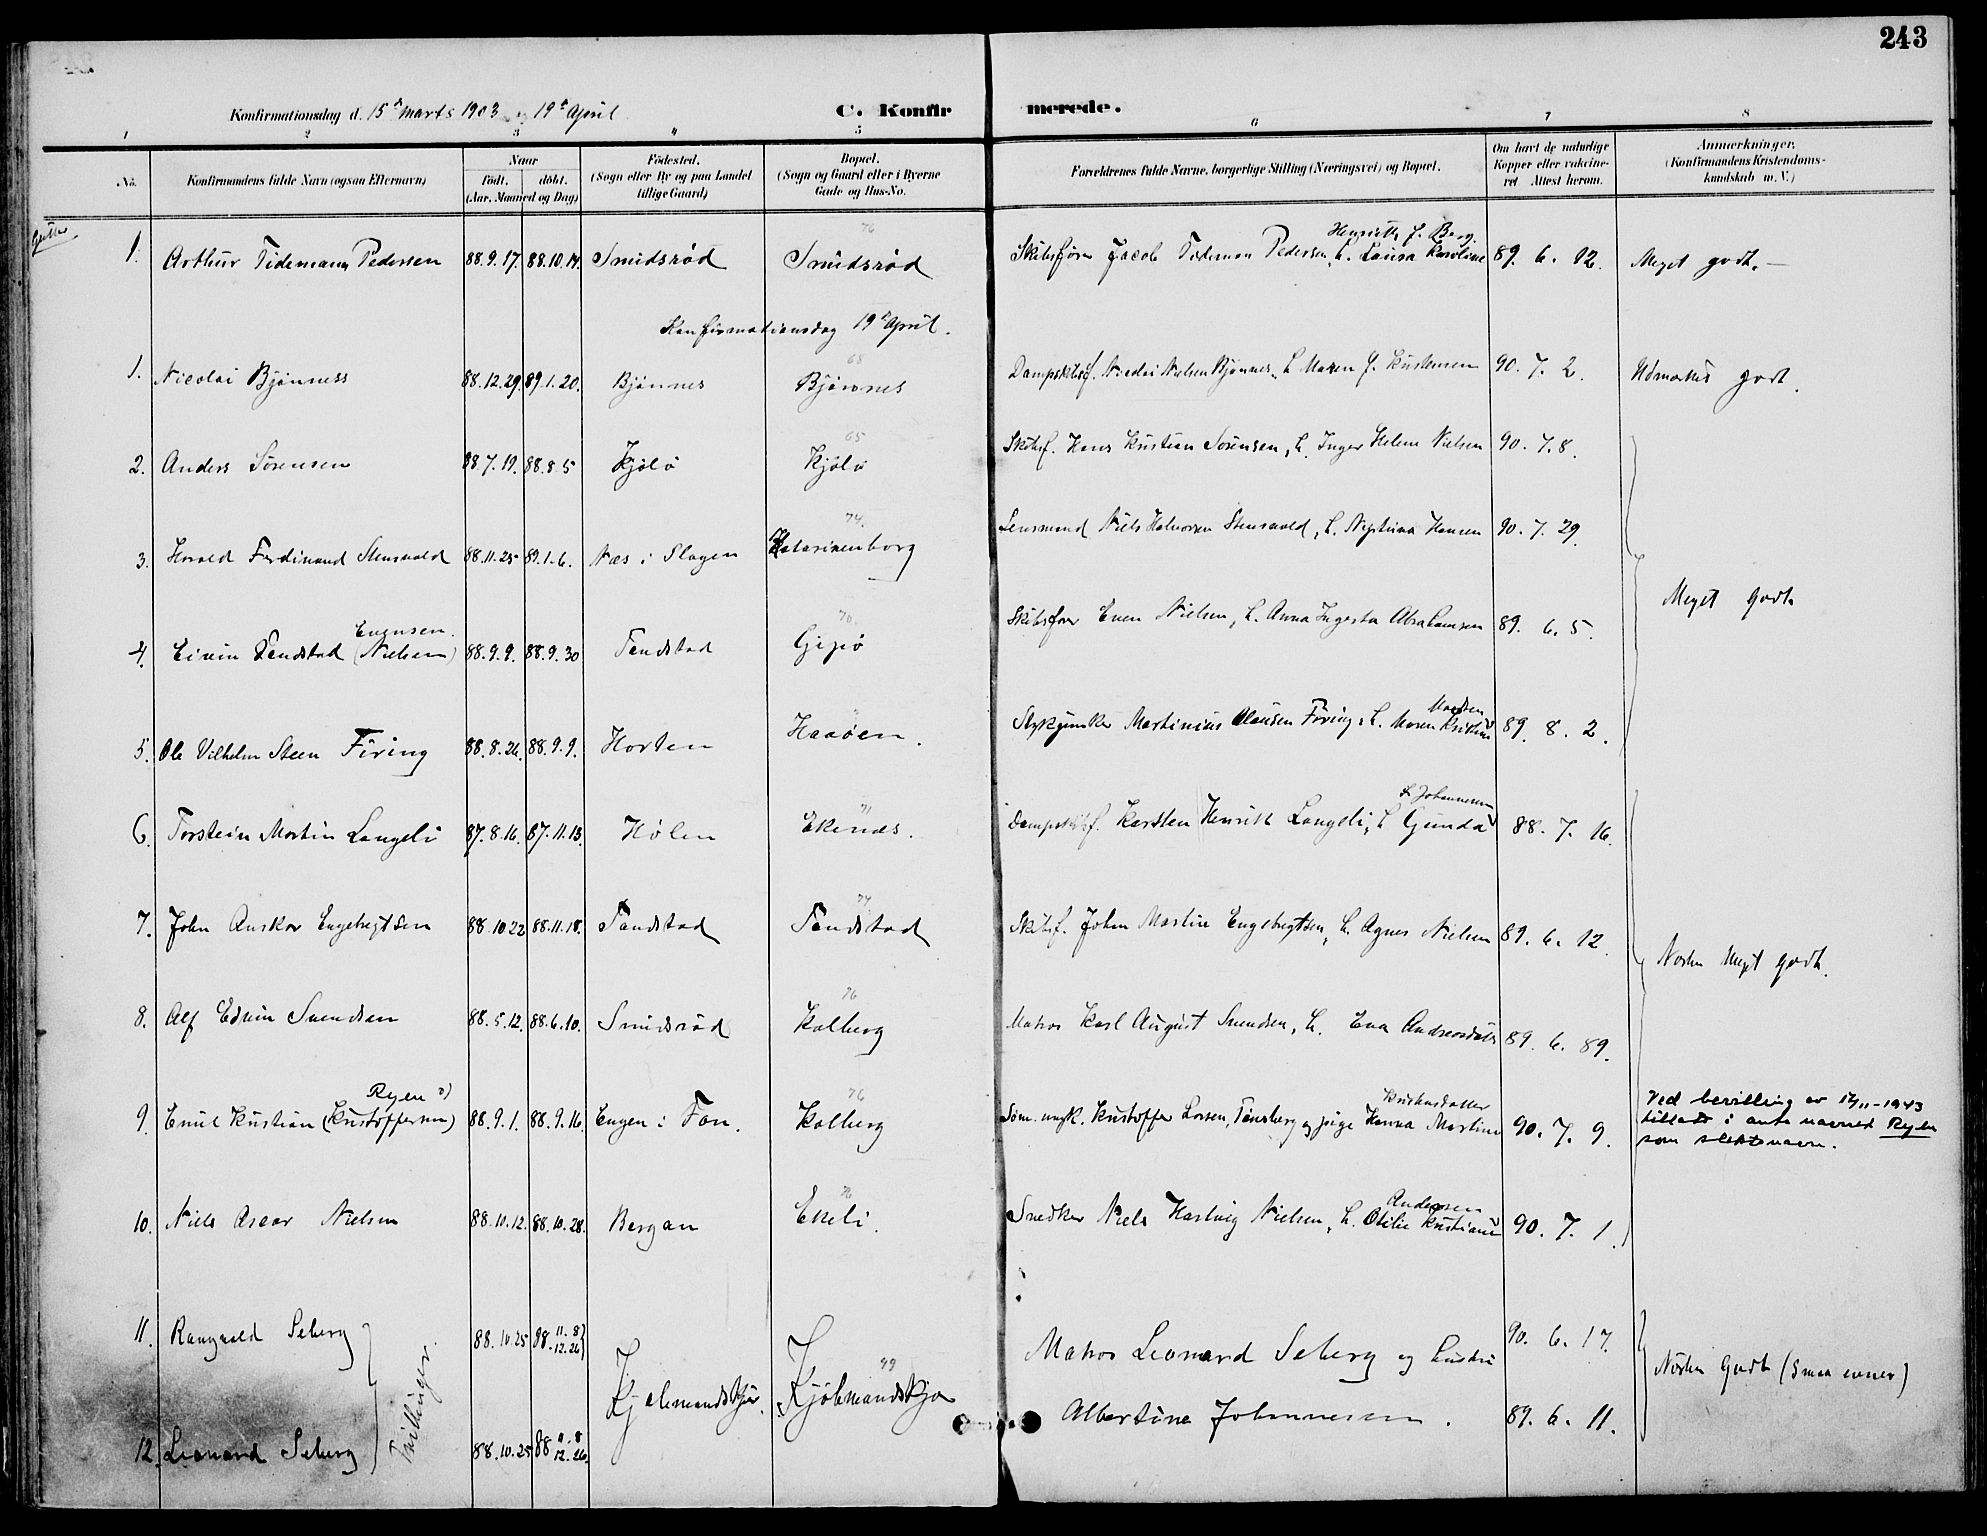 243
Konfirmationsdag d. 15de Marts 1903 og 19de April
C. Konfirmerede.
1 2 3 4 5 6 7 8
No. Konfirmandens fulde Navn (ogsaa Efternavn)
Naar
født. døbt.
(Aar, Maaned og Dag)
Fødested.
(Sogn eller By og paa Landet
tillige Gaard)
Bopæl.
(Sogn og Gaard eller i Byerne
Gade og Hus-No.
Forældrenes fulde Navne, borgerlige Stilling (Næringsvei) og Bopæl.
Om havt de naturlige
Kopper eller vakcine-
ret Attest herom.
Anmærkninger.
(Konfirmandens Kristendoms-
kundskab m. V.)
Gutter
76 Henriette f. Berg.
1. Arthur Tidemann Pedersen 88.9.17. 88.10.14. Smidsrød Smidsrød Skibsfører Jacob Tideman Pedersen, h. Laura Karoline 89. 6. 12. Meget godt. —
Konfirmationsdag 19de April.
68
1. Nicolai Bjønness 88.12.29. 89.1.20. Bjønnes Bjønnes Dampskibsf. Nicolai Nielsen Bjønnes, h. Maren J. Kristensen 90. 7. 2. Udmærket godt.
65
2. Anders Sørensen 88.7.19. 88.8.5 Kjølø Kjølø Skibsf. Hans Kristian Sørensen, h. Inger Helene Nielsen 90. 7. 8.
74.
3. Harald Ferdinand Stensvold 88.11.25 89.1.6. Næs i Slagen Katarinenborg Lensmand Niels Halvorsen Stensvold, h. Neptuna Hansen 90. 7. 29.
Meget godt
Evensen. 70.
4. Eivin Tandstad (Nielsen) 88.9.9. 88.9.30 Tandstad Gipø Skibsfører Even Nielsen, h. Anna Ingerta Abrahamsen 89. 6. 5.
Madsen
5. Ole Vilhelm Steen Firing 88.8.26. 88.9.9. Horten Haaøen. Styrkjunker Martinius Olausen Firing, h. Maren Kristine 89. 8. 2.
71 f. Johannesen
6. Torstein Martin Langeli 87.8.16. 87.11.13. Hølen Ekenæs. Dampskibsf. Karsten Henrik Langeli, h. Gunda 88. 7. 16.
74
7. John Anskar Engebregtsen 88.10.22 88.11.18. Tandstad Tandstad Skibsf. Johan Martin Engebregtsen, h. Agnes Nielsen 89. 6. 12.
Næsten Meget godt.
76
8. Alf Edvin Svendsen 88.5.12. 88.6.10. Smidsrød Kolberg Matros Karl August Svendsen, h. Eva Andreasdatter 89. 6. 89.
Ryen 76 Kristensdatter
9. Emil Kristian (Kristoffersen) 88.9.1. 88.9.16. Engen i Fon. Kolberg Søm. ungk. Kristoffer Larsen, Tønsberg og pige Hanna Martine 90. 7. 9.
Ved bevilling av 17/11-1943
tillatt i anta navnet Ryen
som slektsnavn.
76 Andersen
10. Niels Oscar Nielsen 88.10.12. 88.10.28. Bergan Ekeli. Snedker Niels Hartvig Nielsen, h. Otilie Kristiane 90. 7. 1.
11. Rangvald Seberg 88.10.25 88 11.8 12.26 Kjøbmandskjær. 49 Kjøbmandskjær Matros Leonard Seberg og hustru 90. 6. 17.
Tvillinger.
Næsten Godt (smaa evner)
12. Leonard Seberg 88.10.25 88 11.8 12.26. Albertine Johannesen. 89. 6. 11.